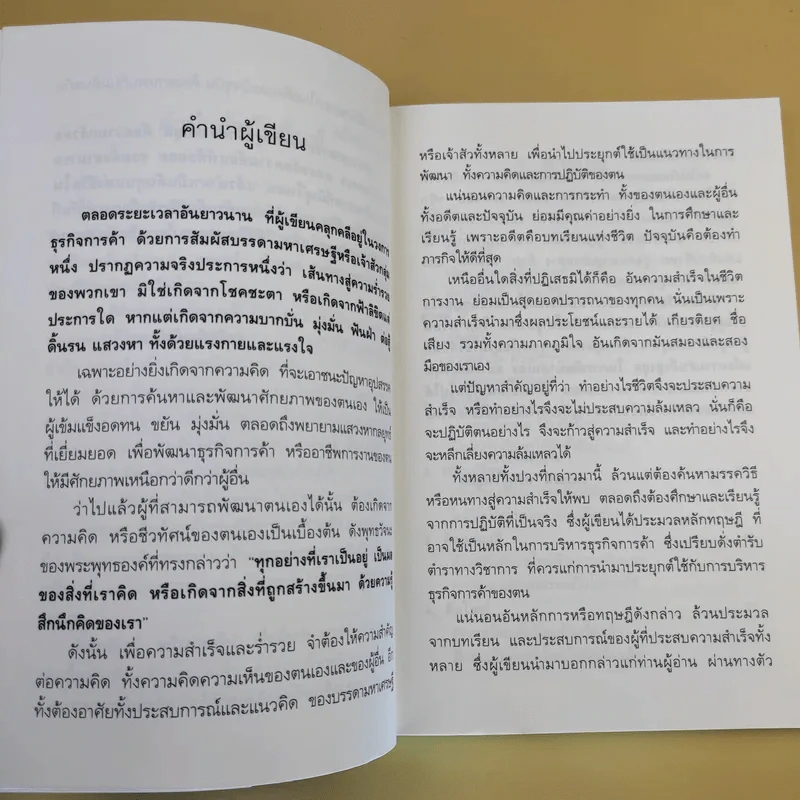 คำนำผู้เขียน
ตลอดระยะเวลาอันยาวนาน ที่ผู้เขียนคลุกคลีอยู่ในวงการ
ธุรกิจการค้า ด้วยการสัมผัสบรรดามหาเศรษฐีหรือเจ้าสัวกลุ่ม
หนึ่ง ปรากฏความจริงประการหนึ่งว่า เส้นทางสู่ความร่ำรวย
ของพวกเขา มิใช่เกิดจากโชคชะตา หรือเกิดจากฟ้าลิขิตแต่
ประการใด หากแต่เกิดจากความบากบั่น มุ่งมั่น ฟันฝ่า ต่อสู้
ดิ้นรน แสวงหา ทั้งด้วยแรงกายและแรงใจ
เฉพาะอย่างยิ่งเกิดจากความคิด ที่จะเอาชนะปัญหาอุปสรรค
ให้ได้ ด้วยการค้นหาและพัฒนาศักยภาพของตนเอง ให้เป็น
ผู้เข้มแข็งอดทน ขยัน มุ่งมั่น ตลอดถึงพยายามแสวงหากลยุทธ์
ที่เยี่ยมยอด เพื่อพัฒนาธุรกิจการค้า หรืออาชีพการงานของตน
ให้มีศักยภาพเหนือกว่าดีกว่าผู้อื่น
ว่าไปแล้วผู้ที่สามารถพัฒนาตนเองได้นั้น ต้องเกิดจาก
ความคิด หรือชีวทัศน์ของตนเองเป็นเบื้องต้น ดังพุทธวัจนะ
ของพระพุทธองค์ที่ทรงกล่าวว่า "ทุกอย่างที่เราเป็นอยู่ เป็นผล
ของสิ่งที่เราคิด หรือเกิดจากสิ่งที่ถูกสร้างขึ้นมา ด้วยความรู้
สึกนึกคิดของเรา"
ดังนั้น เพื่อความสำเร็จและร่ำรวย จำต้องให้ความสำคัญ
ต่อความคิด ทั้งความคิดความเห็นของตนเองและของผู้อื่น อีก
ทั้งต้องอาศัยทั้งประสบการณ์และแนวคิด ของบรรดามหาเศรษฐี
หรือเจ้าสัวทั้งหลาย เพื่อนำไปประยุกต์ใช้เป็นแนวทางในการ
พัฒนา ทั้งความคิดและการปฏิบัติของตน
แน่นอนความคิดและการกระทำ ทั้งของตนเองและผู้อื่น
ทั้งอดีตและปัจจุบัน ย่อมมีคุณค่าอย่างยิ่ง ในการศึกษาและ
เรียนรู้ เพราะอดีตคือบทเรียนแห่งชีวิต ปัจจุบันคือต้องทำ
ภารกิจให้ดีที่สุด
เหนืออื่นใดสิ่งที่ปฏิเสธมิได้ก็คือ อันความสำเร็จในชีวิต
การงาน ย่อมเป็นสุดยอดปรารถนาของทุกคน นั่นเป็นเพราะ
ความสำเร็จนำมาซึ่งผลประโยชน์และรายได้ เกียรติยศ ชื่อ
เสียง รวมทั้งความภาคภูมิใจ อันเกิดจากมันสมองและสอง
มือของเราเอง
แต่ปัญหาสำคัญอยู่ที่ว่า ทำอย่างไรชีวิตจึงจะประสบความ
สำเร็จ หรือทำอย่างไรจึงจะไม่ประสบความล้มเหลว นั่นก็คือ
จะปฏิบัติตนอย่างไร จึงจะก้าวสู่ความสำเร็จ และทำอย่างไรจึง
จะหลีกเลี่ยงความล้มเหลวได้
ทั้งหลายทั้งปวงที่กล่าวมานี้ ล้วนแต่ต้องค้นหามรรควิธี
หรือหนทางสู่ความสำเร็จให้พบ ตลอดถึงต้องศึกษาและเรียนรู้
จากการปฏิบัติที่เป็นจริง ซึ่งผู้เขียนได้ประมวลหลักทฤษฎี ที่
อาจใช้เป็นหลักในการบริหารธุรกิจการค้า ซึ่งเปรียบดั่งตำรับ
ตำราทางวิชาการ ที่ควรแก่การนำมาประยุกต์ใช้กับการบริหาร
ธุรกิจการค้าของตน
แน่นอนอันหลักการหรือทฤษฎีดังกล่าว ล้วนประมวล
จากบทเรียน และประสบการณ์ของผู้ที่ประสบความสำเร็จทั้ง
หลาย ซึ่งผู้เขียนนำมาบอกกล่าวแก่ท่านผู้อ่าน ผ่านทางตัว